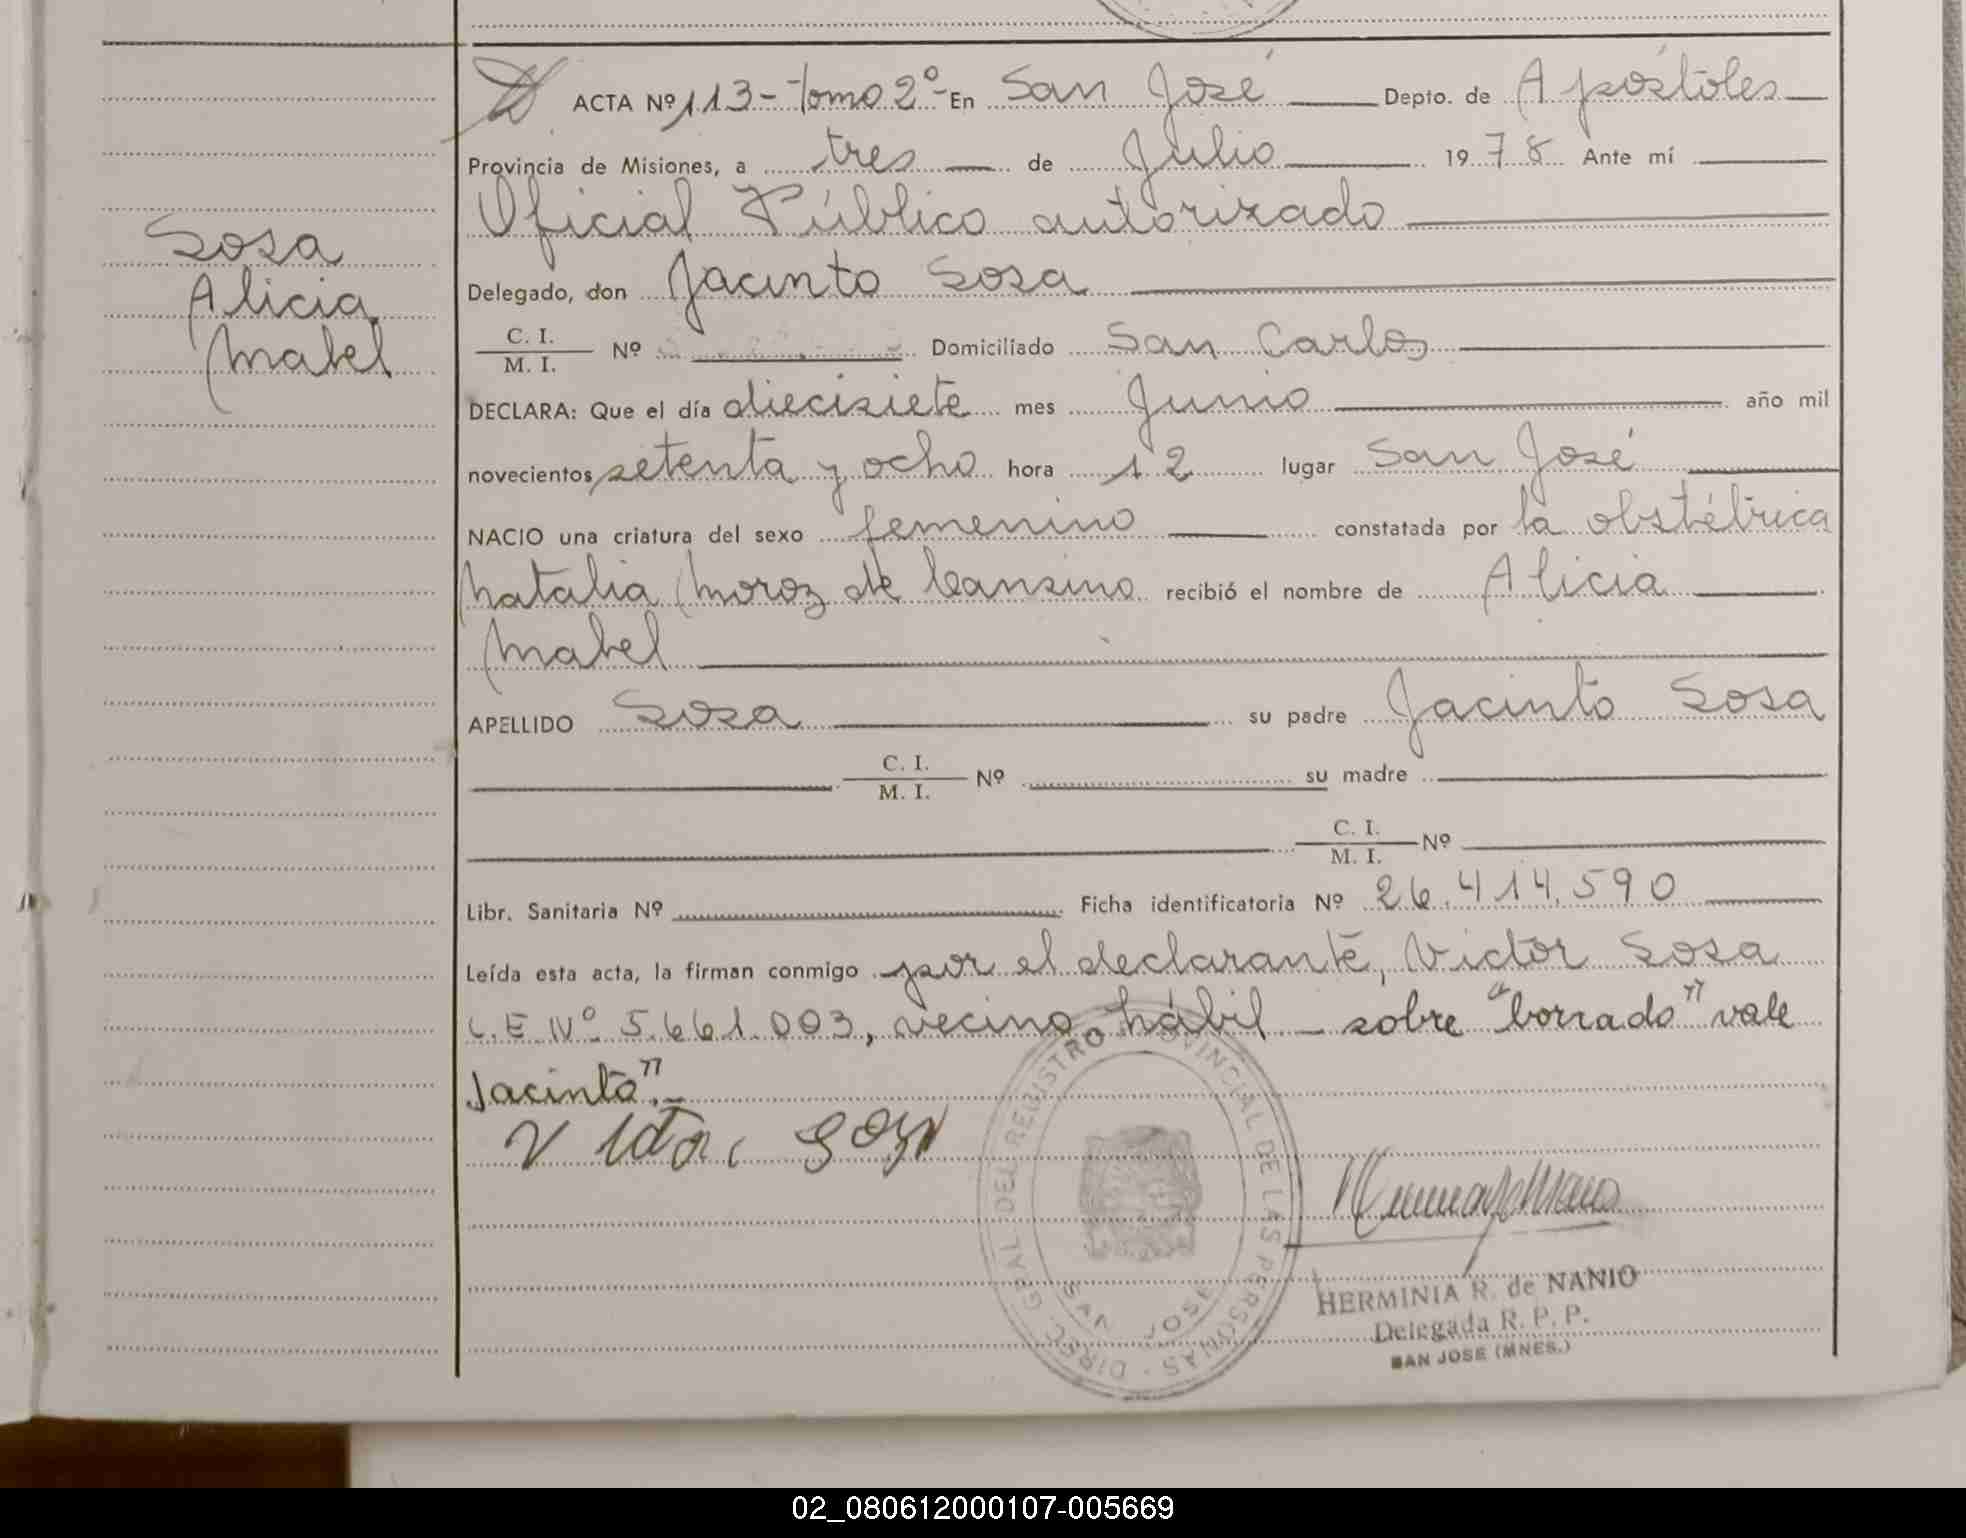 ACTA Nº 113 - Tomo 2º - En San José Depto. de Apóstoles
Provincia de Misiones, a tres de Julio 1978 Ante mí
Oficial Público autorizado
Sosa
Alicia
Mabel
Delegado, don Jacinto Sosa
C. I.
M. I. Nº Domiciliado San Carlos
DECLARA: Que el día diecisiete mes Junio año mil
novecientos setenta y ocho hora 12 lugar San José
NACIO una criatura del sexo femenino constatada por la obstétrica
Natalia Moroz de Cansino recibió el nombre de Alicia
Mabel
APELLIDO Sosa su padre Jacinto Sosa
C. I.
M. I. Nº su madre
C. I.
M. I. Nº
Libr. Sanitaria Nº Ficha identificatoria Nº 26.414.590
Leída esta acta, la firman conmigo por el declarante, Victor Sosa
L.E. Nº 5.661.003, vecino hábil - sobre "borrado" vale
Jacinto".-
Victor Sosa
DIREC. GRAL DEL REGISTRO PROVINCIAL DE LAS PERSONAS
SAN JOSE
HERMINIA R. de NANIO
Delegada R. P. P.
SAN JOSE (MNES.)
02_080612000107-005669